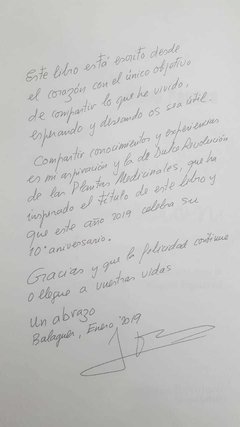 Este libro está escrito desde
el corazón con el único objetivo
de compartir lo que he vivido,
esperando y deseando os sea útil.
Compartir conocimientos y experiencias
es mi aspiración y la de Dulce Revolución
de las Plantas Medicinales, que ha
inspirado el título de este libro y
que este año 2019 celebra su
10º aniversario.
Gracias y que la felicidad continue
o llegue a vuestras vidas
un abrazo
Balaguer, Enero '2019